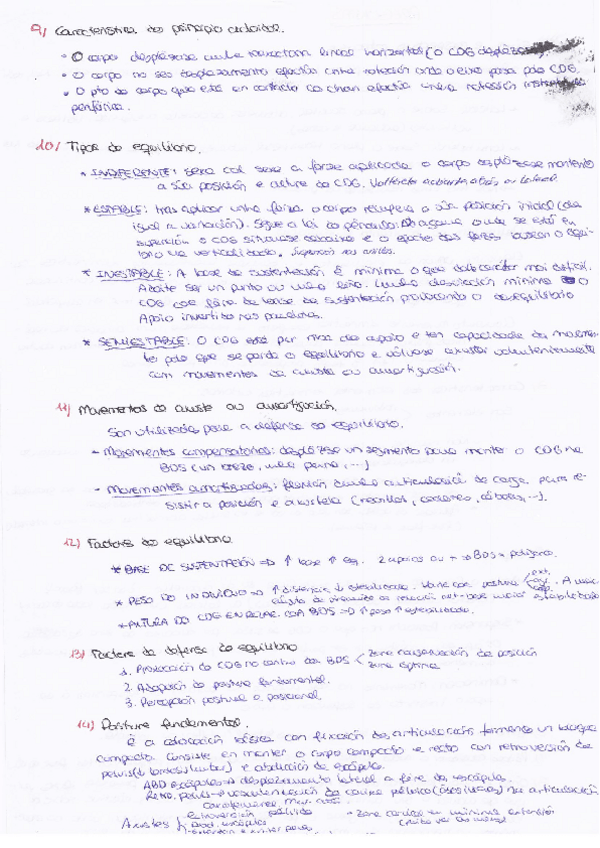 9/ Características do principio cicloidal.
• O corpo desprázase cunha traxectoria lineal horizontal (o CDG desprázase)
• O corpo no seu desprazamento efectúa unha rotación onde o eixo pasa polo CDG.
• O pto do corpo que está en contacto co chan efectúa unha rotación instantánea
periférica.
10/ Tipos de equilibrio.
* INDIFERENTE: sexa cal sexa a forza aplicada o corpo desprázase mantendo
a súa posición e altura do CDG. Voltereta adiante, atrás ou lateral.
* ESTABLE: tras aplicar unha forza o corpo recupera a súa posición inicial (da
igual a variación). Segue a lei do péndulo. O que se está en
suspensión o CDG sitúase abaixo e o efecto das forzas buscan o equi-
librio na verticalidade. Suspensión nas anelas.
* INESTABLE: A base de sustentación é mínima o que dálle carácter moi difícil.
Adoite ser un punto ou unha liña. Cunha desviación mínima o
CDG cae fóra da base de sustentación provocando o desequilibrio
Apoio invertido nas paralelas.
* SEMIESTABLE: O CDG está por riba do apoio e ten capacidade de movemen-
to polo que se perde o equilibrio e vólvese axustar voluntariamente
con movementos de axuste ou amortiguación.
11) Movementos de axuste ou amortiguación.
Son utilizados para a defensa do equilibrio.
- Movementos compensatorios: desprázase un segmento para manter o CDG na
BDS (un brazo, unha perna, ...)
- Movementos amortiguados: flexión dunha articulación de carga para re-
sistir a posición e a postela (nocellos, cadeiras, cóbados, ...).
12) Factores do equilibrio
* BASE DE SUSTENTACIÓN => ↑ base ↑ eq. 2 apoios ou + => BDS = polígono.
* PESO DO INDIVIDUO => ↑ distancia ↓ estabilidade. Varía coa postura
* ALTURA DO CDG EN RELAC. COA BDS => ↑ peso ↑ estabilidade.
13) Factores de defensa do equilibrio
1. Proxección do CDG no centro da BDS < zona conservación da posición
zona óptima
2. Adopción da postura fundamental.
3. Percepción postural e posicional.
14) Postura fundamental.
É a colocación básica con fixación das articulacións formando un bloque
compacto. Consiste en manter o corpo compacto e recto con retroversión da
pelvis (lordosis lumbar) e abdución de escápulas.
ABD escápulas => desprazamento lateral a fóra da escápula.
Retro. pelvis => na articulación
coxofemoral.
Axustes { Retroversión pélvica
Abd. escápulas